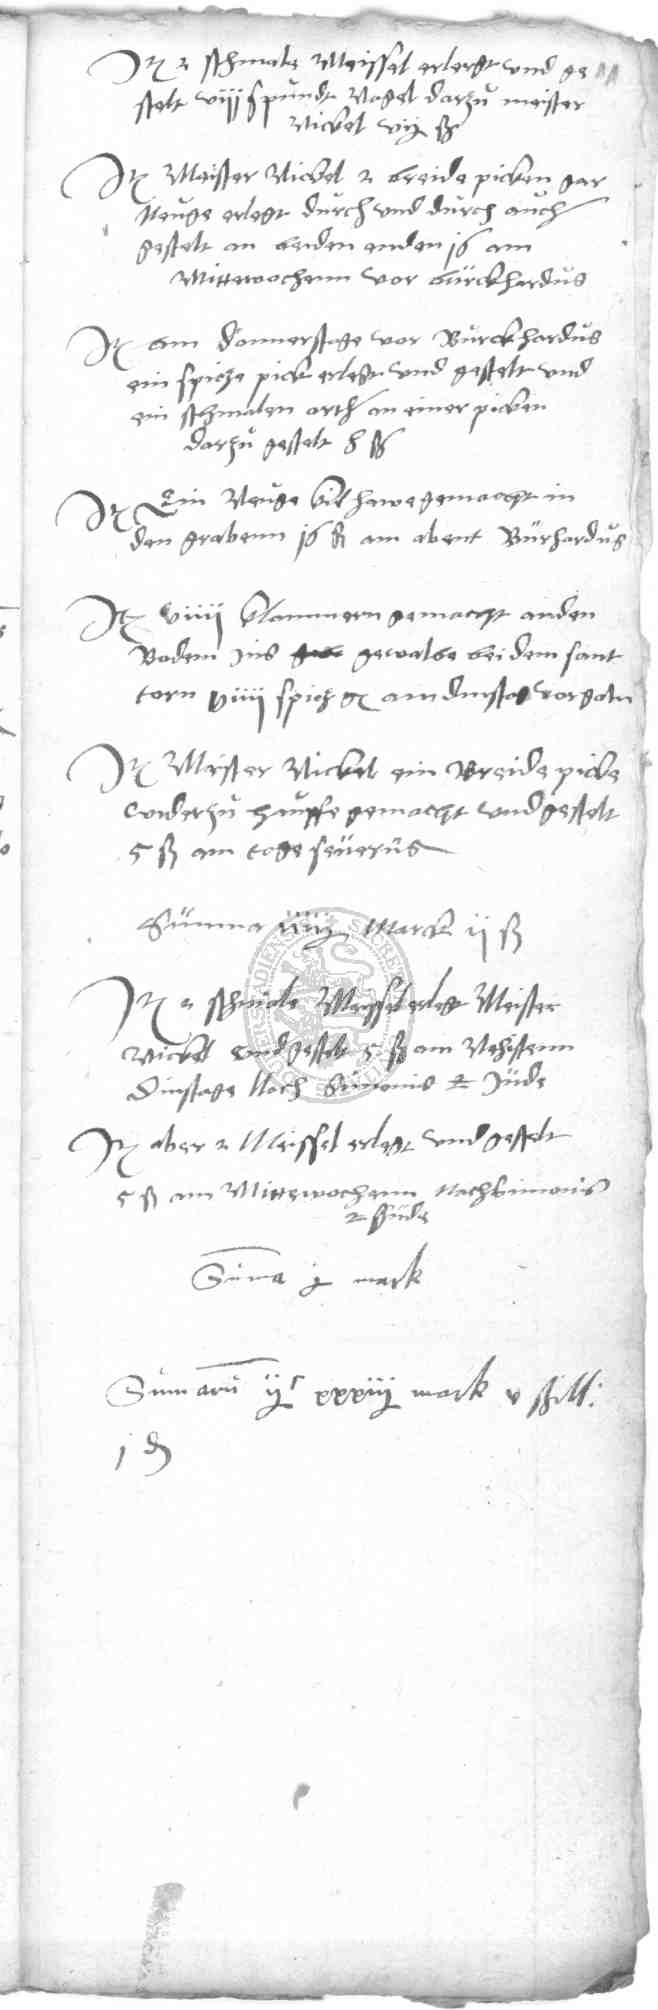 Itz 2 schmale Meissel erlegt vnd ge
stelt viij spundt Nagel darzu meister
Nickel vij ß
Itz Meister Nickel 2 breide picken gar
Neuge erlegt durch vnd durch auch
gestelt an beiden enden 16 am
Mittewochenn vor burckhardus
Itz am Donnerstage vor Burckhardus
ein spicze pick erlegt vnd gestelt vnd
ein schmalen orth an einer picken
darzu gestelt ß
Itz Ein Neuge hawe gemacht in
den grabenn 16 am abent Burhardus
Itz viiij klammern gemacht an den
Bodem Ins gewalbe bei dem sant
torn viiij am dinstag vor galu
Itz Meister Nickel ein Breide picke
widerzu hauffe gemacht vnd gestelt
5 ß am tage seuerus
Summa Marck ij ß
Itz 2 schmale Meissel erlegt Meister
Nickel vnd gestelt 5 ß am Nehstenn
Dinstage Noch Simonis et Jude
Itz aber 2 Meissel erlegt vnd gestelt
5 ß am Mittewochenn nach Simonis
et Jude
Suma mark
Sumaru xxxiij mark v schill:
j d